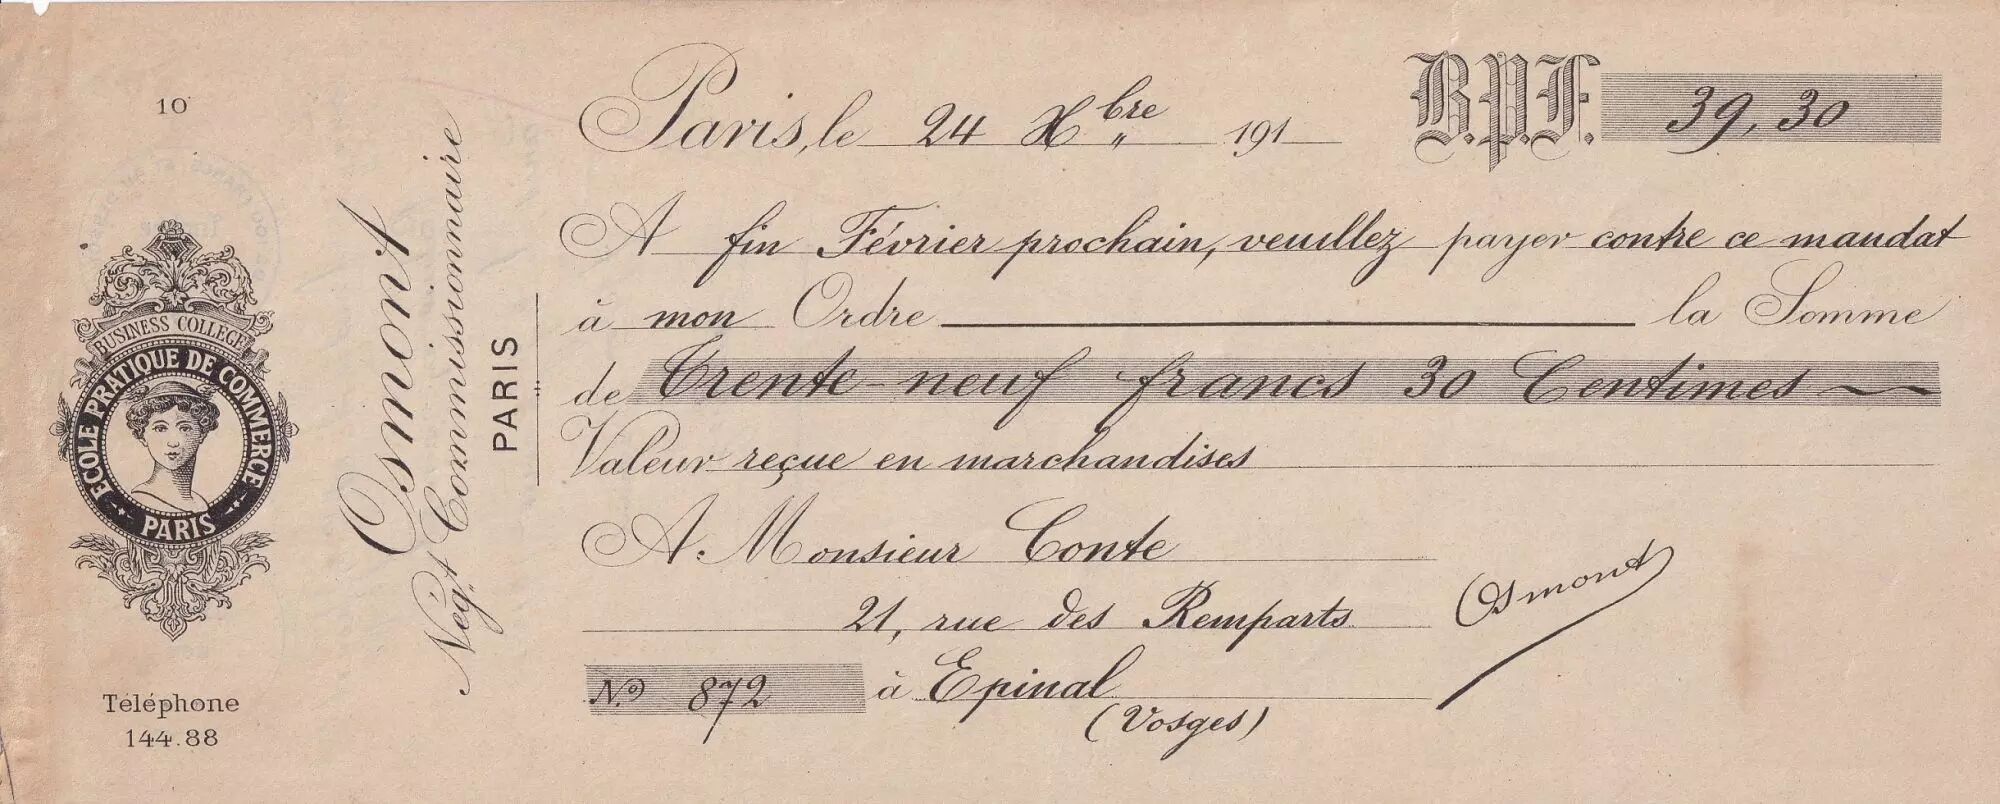 10
BUSINESS COLLEGE
ECOLE PRATIQUE DE COMMERCE
PARIS
Téléphone
144.88
Osmont
Négt. Commissionnaire
PARIS
Paris, le 24 Xbre 191
B.P.F. 39,30
A fin Février prochain, veuillez payer contre ce mandat
à mon Ordre la Somme
de Trente-neuf francs 30 Centimes
Valeur reçue en marchandises
A. Monsieur Conte
21, rue des Remparts
Osmont
No. 872 à Epinal
(Vosges)